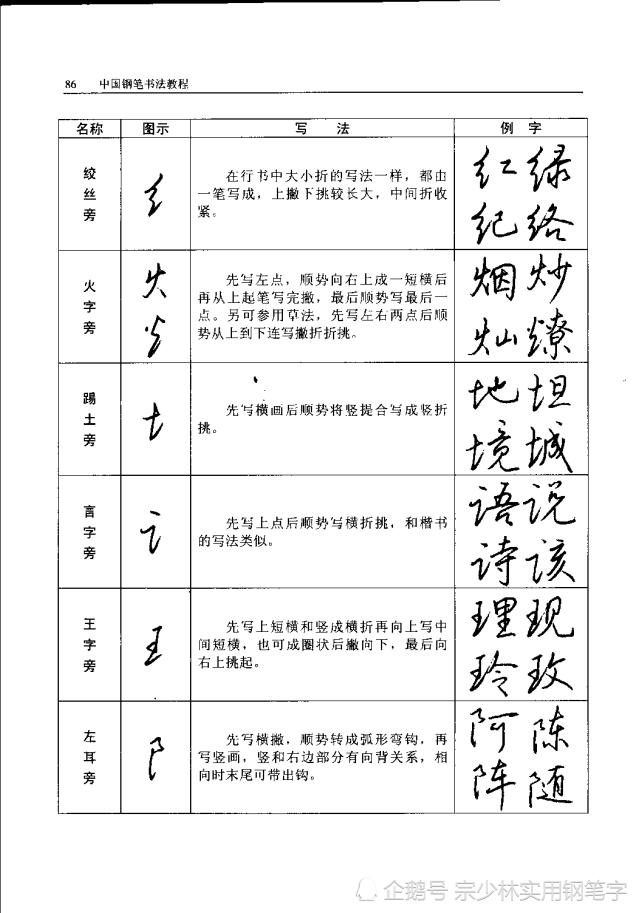 86 中国钢笔书法教程
名称 图示 写 法 例 字
绞丝旁
纟
在行书中大小折的写法一样，都由
一笔写成，上撇下挑较长大，中间折收
紧。
红 绿
纪 络
火字旁
火
先写左点，顺势向右上成一短横后
再从上起笔写完撇，最后顺势写最后一
点。另可参用草法，先写左右两点后顺
势从上到下连写撇折折挑。
烟 炒
灿 燎
踢土旁
先写横画后顺势将竖提合写成竖折
挑。
地 坦
境 城
言字旁
讠
先写上点后顺势写横折挑，和楷书
的写法类似。
语 说
诗 该
王字旁
王
先写上短横和竖成横折再向上写中
间短横，也可成圈状后撇向下，最后向
右上挑起。
理 现
玲 玫
左耳旁
阝
先写横撇，顺势转成弧形弯钩，再
写竖画，竖和右边部分有向背关系，相
向时末尾可带出钩。
阿 陈
阵 随
企鹅号 宗少林实用钢笔字